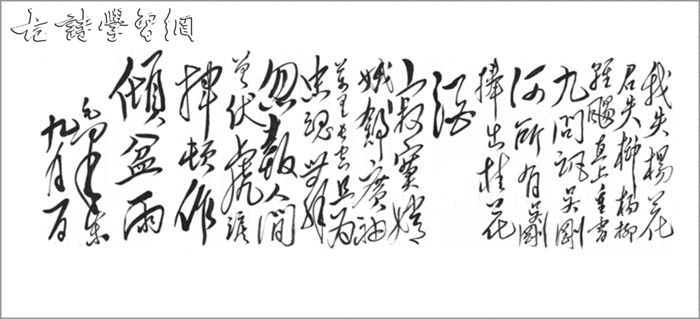 古詩學習網
我失楊花
君失柳楊柳
輕颺直上重霄
九問訊吳剛
何所有吳剛
捧出桂花
酒
寂寞嫦
娥舒廣袖
萬里長空且為
忠魂舞
忽報人間
曾伏虎淚
揮頓作
傾盆雨
毛澤東
九月